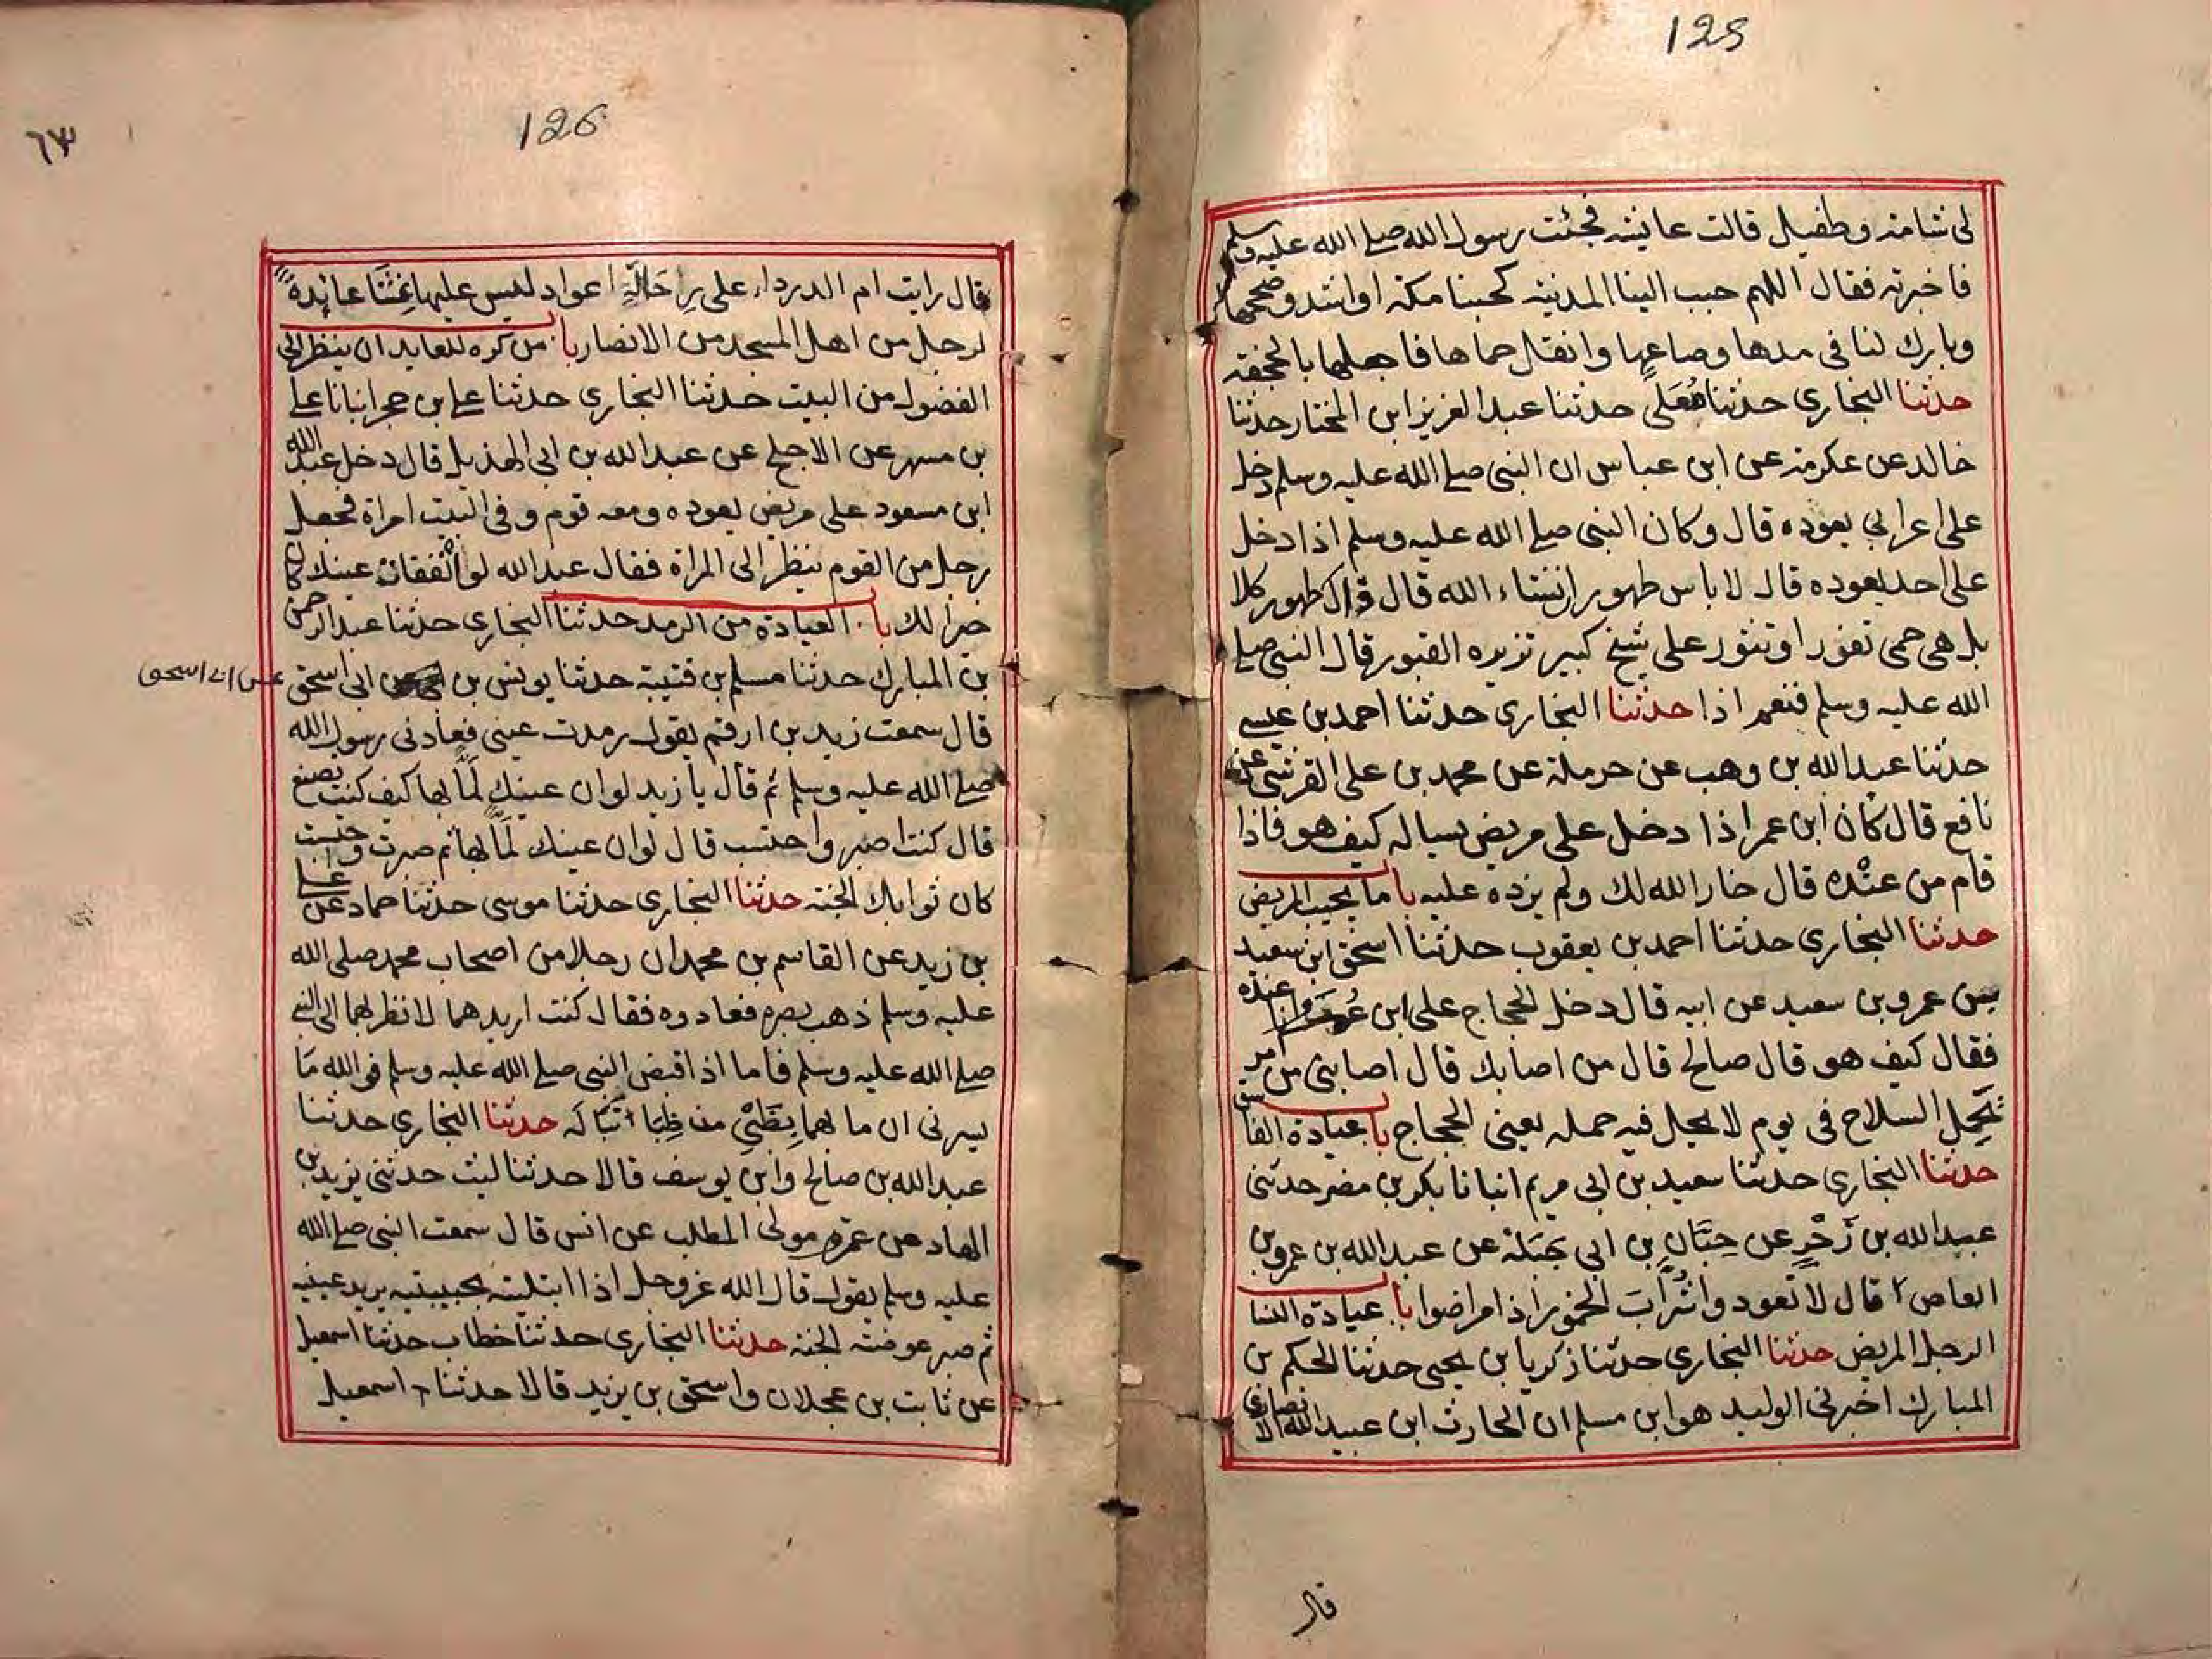 125
لى شامة وطفيل قالت عايشة فجئت رسول الله صلے الله عليه وسلم
فاخبرته فقال اللهم حبب الينا المدينة كحبنا مكة او اشد وصححها
وبارك لنا فى مدها وصاعها وانقل حماها فاجعلها بالجحفة
حدثنا البخارى حدثنا معلى حدثنا عبد العزيز ابن المختار حدثنا
خالد عن عكرمة عن ابن عباس ان النبى صلے الله عليه وسلم دخل
على اعرابي يعوده قال وكان النبى صلے الله عليه وسلم اذا دخل
على احد يعوده قال لا باس طهور ان شاء الله قال قال طهور كلا
بل هى حمى تفور او تثور على شيخ كبير تزيره القبور قال النبى صلے
الله عليه وسلم فنعم اذا حدثنا البخارى حدثنا احمد بن عيسے
حدثنا عبد الله بن وهب عن حرملة عن محمد بن على القرشى عن
نافع قال كان ابن عمر اذا دخل على مريض يساله كيف هو فاذا
قام من عنده قال خار الله لك ولم يزده عليه باب ما يجيب المريض
حدثنا البخارى حدثنا احمد بن يعقوب حدثنا اسحق ابن سعيد
بن عمرو بن سعيد عن ابيه قال دخل الحجاج على ابن عمر وانا عنده
فقال كيف هو قال صالح قال من اصابك قال اصابنى من امر
بحمل السلاح فى يوم لا يحل فيه حمله يعنى الحجاج باب عيادة الفاسق
حدثنا البخارى حدثنا سعيد بن ابى مريم انبانا بكر بن مضر حدثنى
عبيد الله بن زَحْرٍ عن حِبَّانِ بن ابى جَبَلة عن عبد الله بن عمرو بن
العاص قال لا تعودوا شُرّابَ الخمور اذا مرضوا باب عيادة النسا
الرجل المريض حدثنا البخارى حدثنا زكريا بن يحيى حدثنا الحكم بن
المبارك اخبرنى الوليد هو ابن مسلم ان الحارث ابن عبيد الله الانصارى
قال
126
٦٣
قال رايت ام الدرداء على رِاحَالَةٍ اعواد ليس عليها غِشَا عايدة
لرجل من اهل المسجد من الانصار باب من كره للعايد ان ينظر الى
الفضول من البيت حدثنا البخارى حدثنا على بن حجر انبانا على
بن مسهر عن الاجلح عن عبد الله بن ابى الهذيل قال دخل عبد الله
ابن مسعود على مريض يعوده ومعه قوم وفى البيت امراة فجعل
رجل من القوم ينظر الى المراة فقال عبد الله لو انفقات عينك كان
خيرا لك باب العيادة من الرمد حدثنا البخارى حدثنا عبد الرحمن
بن المبارك حدثنا مسلم بن قتيبة حدثنا يونس بن ابى اسحق
عن ابى اسحق
قال سمعت زيد بن ارقم يقول رمدت عينى فعادنى رسول الله
صلے الله عليه وسلم ثم قال يا زيد لو ان عينك لَمّا بها كيف كنت تصنع
قال كنت اصبر واحتسب قال لو ان عينك لَمّا بها ثم صبرت واحتسبت
كان ثوابك الجنة حدثنا البخارى حدثنا موسى حدثنا حماد عن على
بن زيد عن القاسم بن محمد ان رجلا من اصحاب محمد صلى الله
عليه وسلم ذهب بصره فعادوه فقال كنت اريدهما لانظر بهما الى النبى
صلے الله عليه وسلم فاما اذا قبض النبى صلے الله عليه وسلم فو الله مَا
يسرنى ان ما بهما بِظَبْيٍ من ظِبَا تَبَالَه حدثنا البخارى حدثنا
عبد الله بن صالح وابن يوسف قالا حدثنا ليث حدثنى يزيد بن
الهاد عن عمرو مولى المطلب عن انس قال سمعت النبى صلے الله
عليه وسلم يقول قال الله عز وجل اذا ابتليته بحبيبتيه يريد عينيه
ثم صبر عوضته الجنة حدثنا البخارى حدثنا خطاب حدثنا اسمعيل
عن ثابت بن عجلان واسحق بن يزيد قالا حدثنا اسمعيل